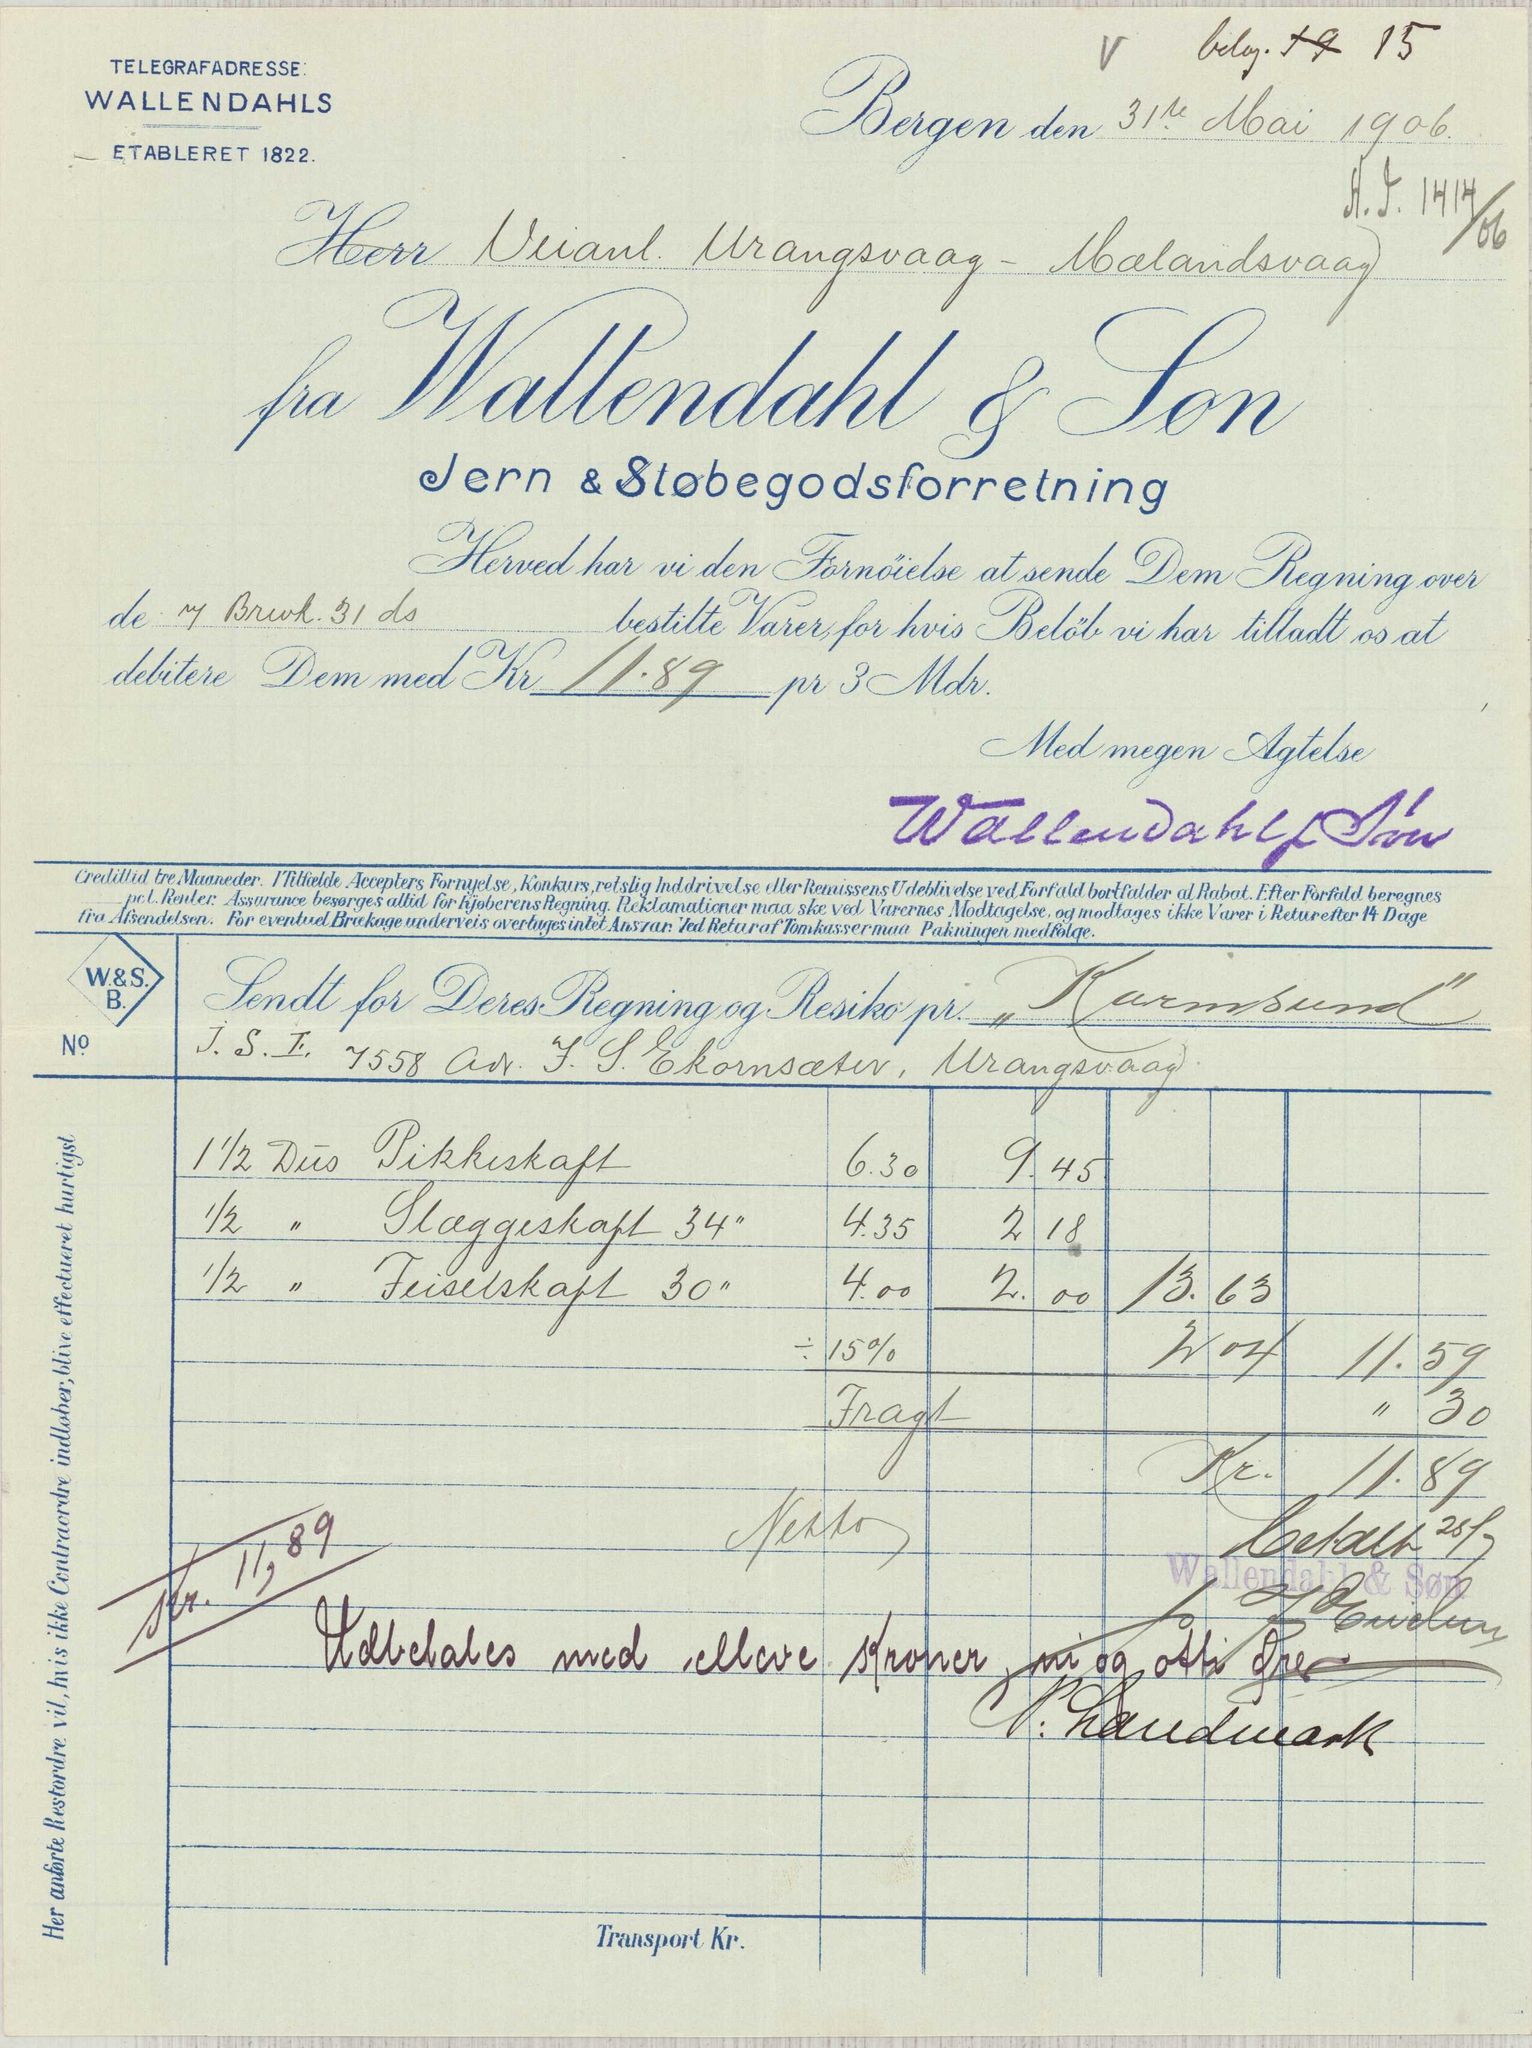 V belag. 19 15
TELEGRAFADRESSE:
WALLENDAHLS
ETABLERET 1822.
Bergen den 31te Mai 1906.
A. J. 1414/06
Herr Veianl. Urangsvaag - Mælandsvaag
fra Wallendahl & Søn
Jern & Støbegodsforretning
Herved har vi den Fornöielse at sende Dem Regning over
de 31 ds bestilte Varer, for hvis Belöb vi har tilladt os at
debitere Dem med Kr 11.89 pr 3 Mdr.
Med megen Agtelse
Wallendahl & Søn
Credittid tre Maaneder. I Tilfælde Accepters Fornyelse, Konkurs, retslig Inddrivelse eller Remissens Udeblivelse ved Forfald bortfalder al Rabat. Efter Forfald beregnes
pct. Renter. Assurance besørges altid for Kjøberens Regning. Reklamationer maa ske ved Varernes Modtagelse, og modtages ikke Varer i Retur efter 14 Dage
fra Afsendelsen. For eventuel Brækage underveis overtages intet Ansvar. Ved Retur af Tomkasser maa Pakningen medfølge.
W. & S.
B.
Sendt for Deres Regning og Resiko pr. "Karmsund"
No
J. S. E. 7558 Adr. J. S. Ekornsæter, Urangsvaag.
1 1/2 Dus Pikkeskaft 6.30 9.45
1/2 " Slæggeskaft 34" 4.35 2 18
1/2 " Feiselskaft 30" 4.00 2.00 13.63
÷ 15% 2 04 11.59
Fragt " 30
Kr. 11.89
Netto
Betalt 25/7
Wallendahl & Søn
Kr. 11,89
Udbetales med elleve kroner, ni og otti øre
N. Landmark
Transport Kr.
Her anførte Restordre vil, hvis ikke Contraordre indløber, blive effectueret hurtigst